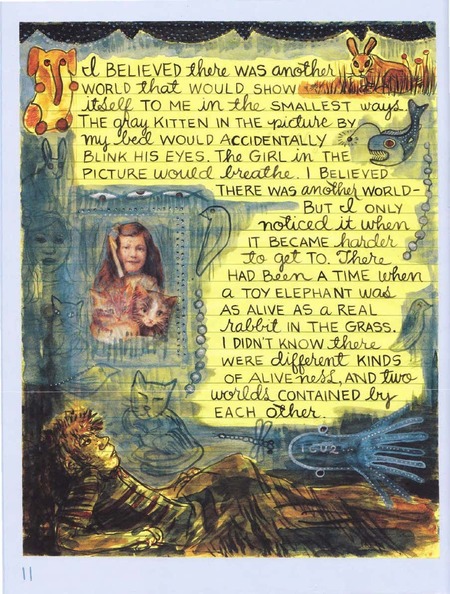 I BELIEVED there WAS another
WORLD that WOULD SHOW
itself TO ME in the SMALLEST ways.
THE gray KITTEN IN THE picture BY
my bed WOULD ACCIDENTALLY
BLINK HIS EYES. The GIRL in the
PICTURE would breathe. I BELIEVED
THERE WAS another WORLD—
BUT I ONLY
noticed it when
IT BECAME harder
to get TO. There
HAD BEEN A TIME when
a TOY ELEPHANT was
AS ALIVE AS a REAL
rabbit IN THE GRASS.
I DIDN'T KNOW there
WERE different KINDS
OF ALIVEness, AND two
worlds CONTAINED by
EACH other.
love
11